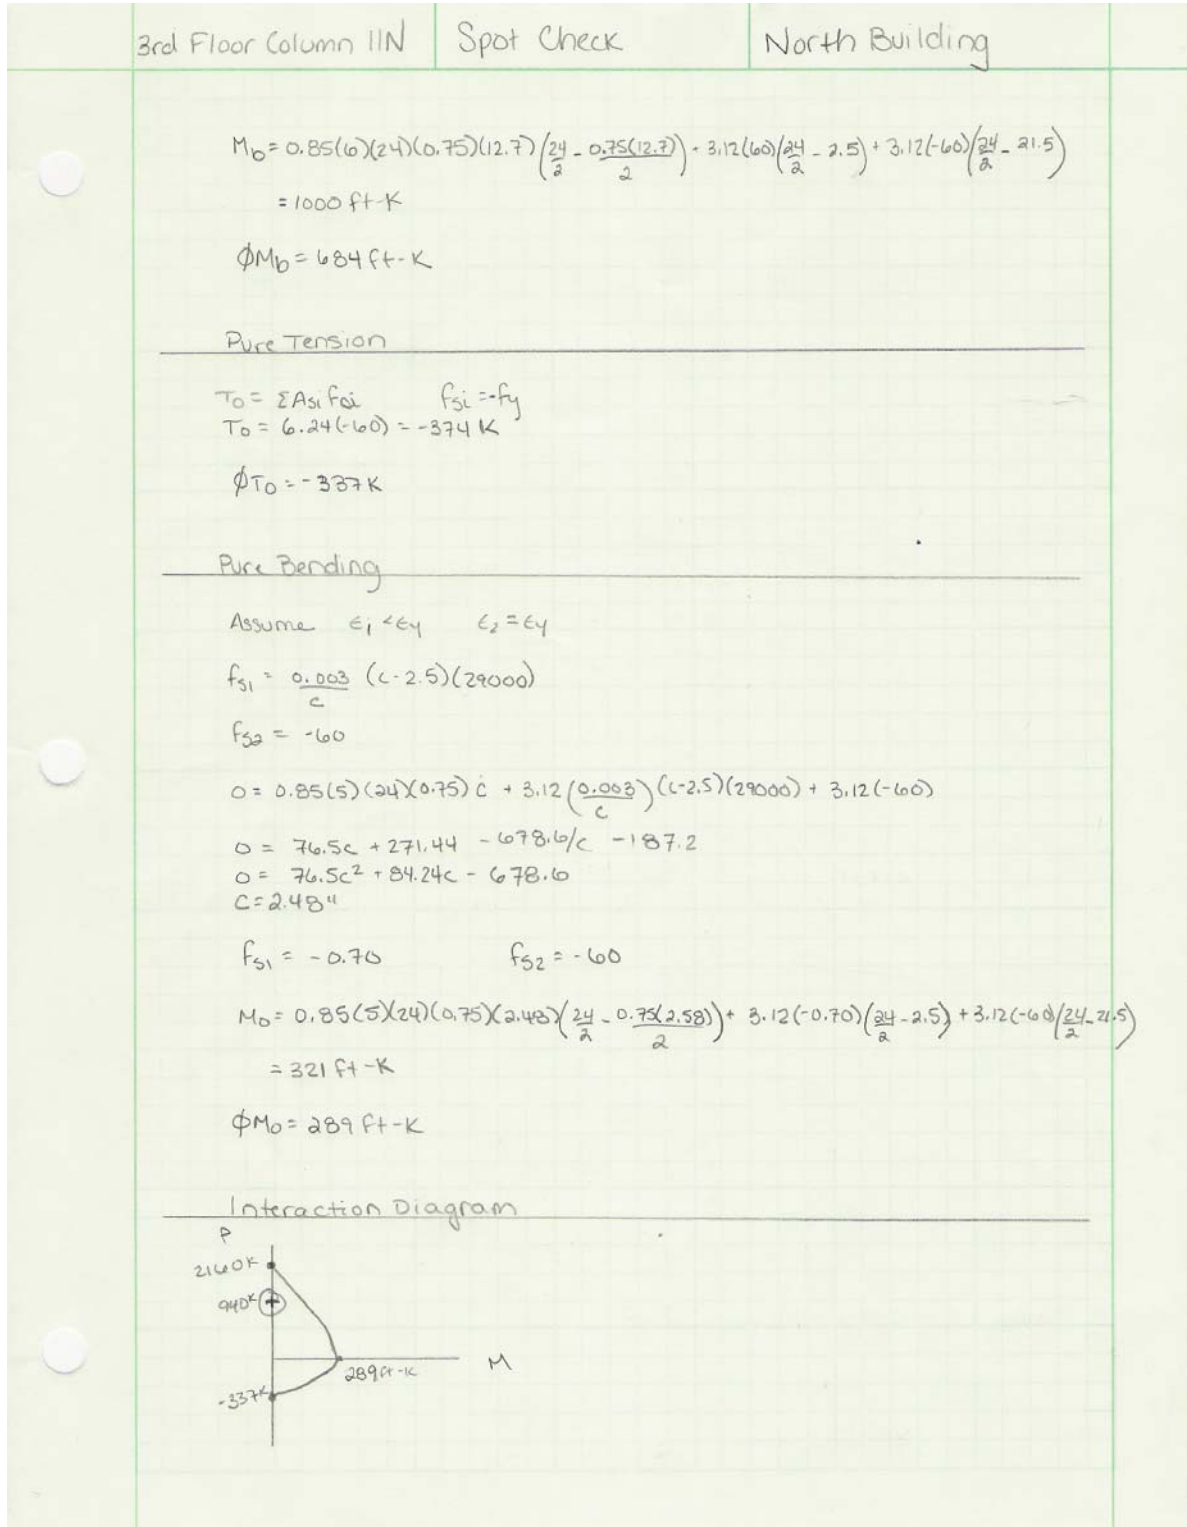 3rd Floor Column 11N Spot Check North Building
Mb = 0.85(6)(24)(0.75)(12.7)(24/2 - 0.75(12.7)/2) + 3.12(60)(24/2 - 2.5) + 3.12(-60)(24/2 - 21.5)
= 1000 ft-K
ϕMb = 684 ft-K
Pure Tension
To = ΣAsi fsi fsi = -fy
To = 6.24(-60) = -374 K
ϕTo = -337K
Pure Bending
Assume ϵ1 < ϵy ϵ2 = ϵy
fs1 = 0.003/c (c-2.5)(29000)
fs2 = -60
0 = 0.85(5)(24)(0.75)c + 3.12(0.003/c)(c-2.5)(29000) + 3.12(-60)
0 = 76.5c + 271.44 - 678.6/c - 187.2
0 = 76.5c² + 84.24c - 678.6
C = 2.48"
fs1 = -0.70 fs2 = -60
Mo = 0.85(5)(24)(0.75)(2.48)(24/2 - 0.75(2.58)/2) + 3.12(-0.70)(24/2 - 2.5) + 3.12(-60)(24/2 - 21.5)
= 321 ft-K
ϕMo = 289 ft-K
Interaction Diagram
P
2160K
940K
289 ft-K M
-337K